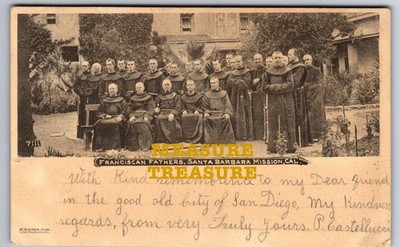 7111
FRANCISCAN FATHERS, SANTA BARBARA MISSION, CAL.
MEASURE
TREASURE
With Kind remembrance to my Dear friend
in the good old City of San Diego, My Kindness
regards, from very Truly Yours. P. Castellucci